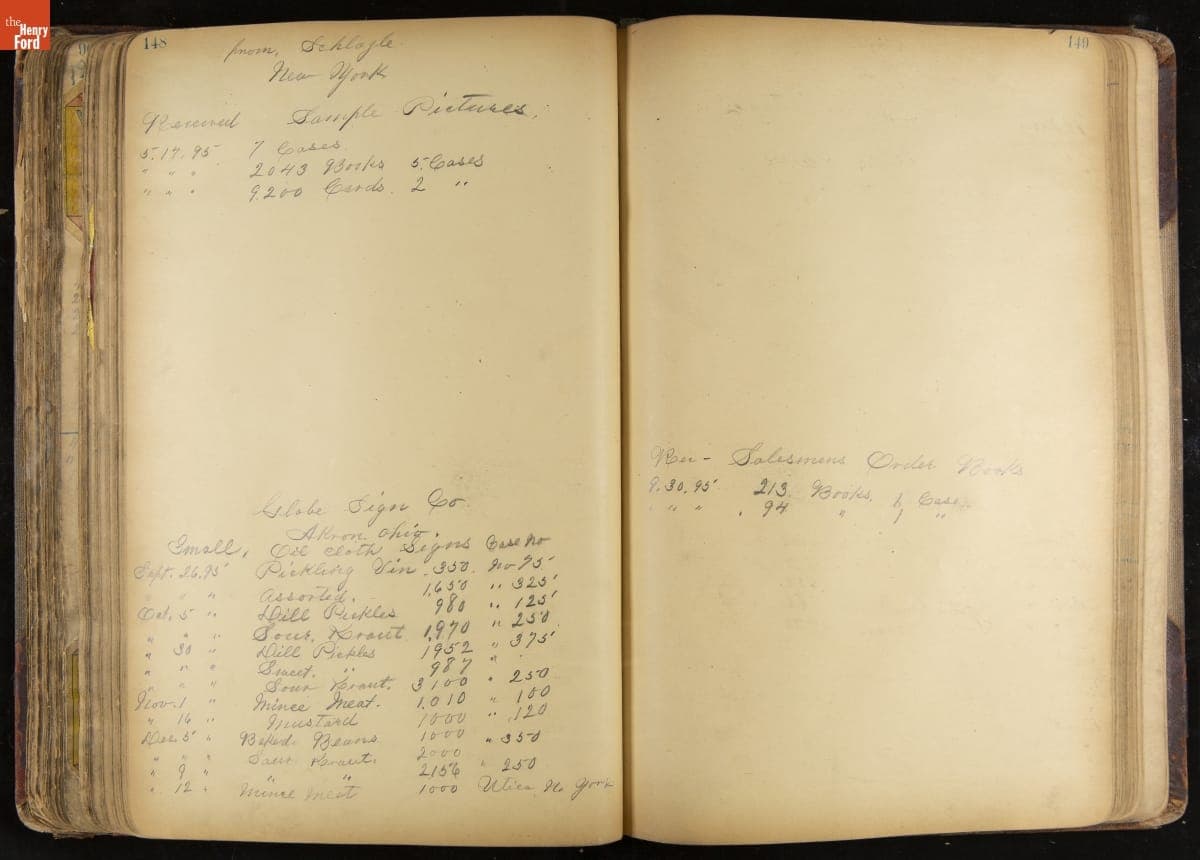 the Henry Ford
148
from, Schlagle
New York
Received Sample Pictures,
5.17.95 7 Cases
" " " 2043 Books 5 Cases
" " " 9.200 Cards. 2 "
Globe Sign Co
Akron, Ohio.
Small, Oil Cloth Signs Case No
Sept. 26.95 Pickling Vin. 350. No 75
" " " Assorted. 1,650 " 325
Oct. 5 " Dill Pickles 980 " 125
" " " Sour Kraut 1,970 " 250
" 30 " Dill Pickles 1952 " 375
" " " Sweet. " 987 "
" " " Sour Kraut. 3100 " 250
Nov. 1 " Mince Meat. 1,010 " 100
" 16 " Mustard 1000 " 120
Dec. 5 " Baked Beans 1000 " 350
" " " Sour Kraut. 2000
" 9 " " " 2156 " 250
" 12 " Mince Meat 1000 Utica, N. York
149
Rec - Salesmens Order Books
9.30.95 213 Books,
" " " 94 " 1 "